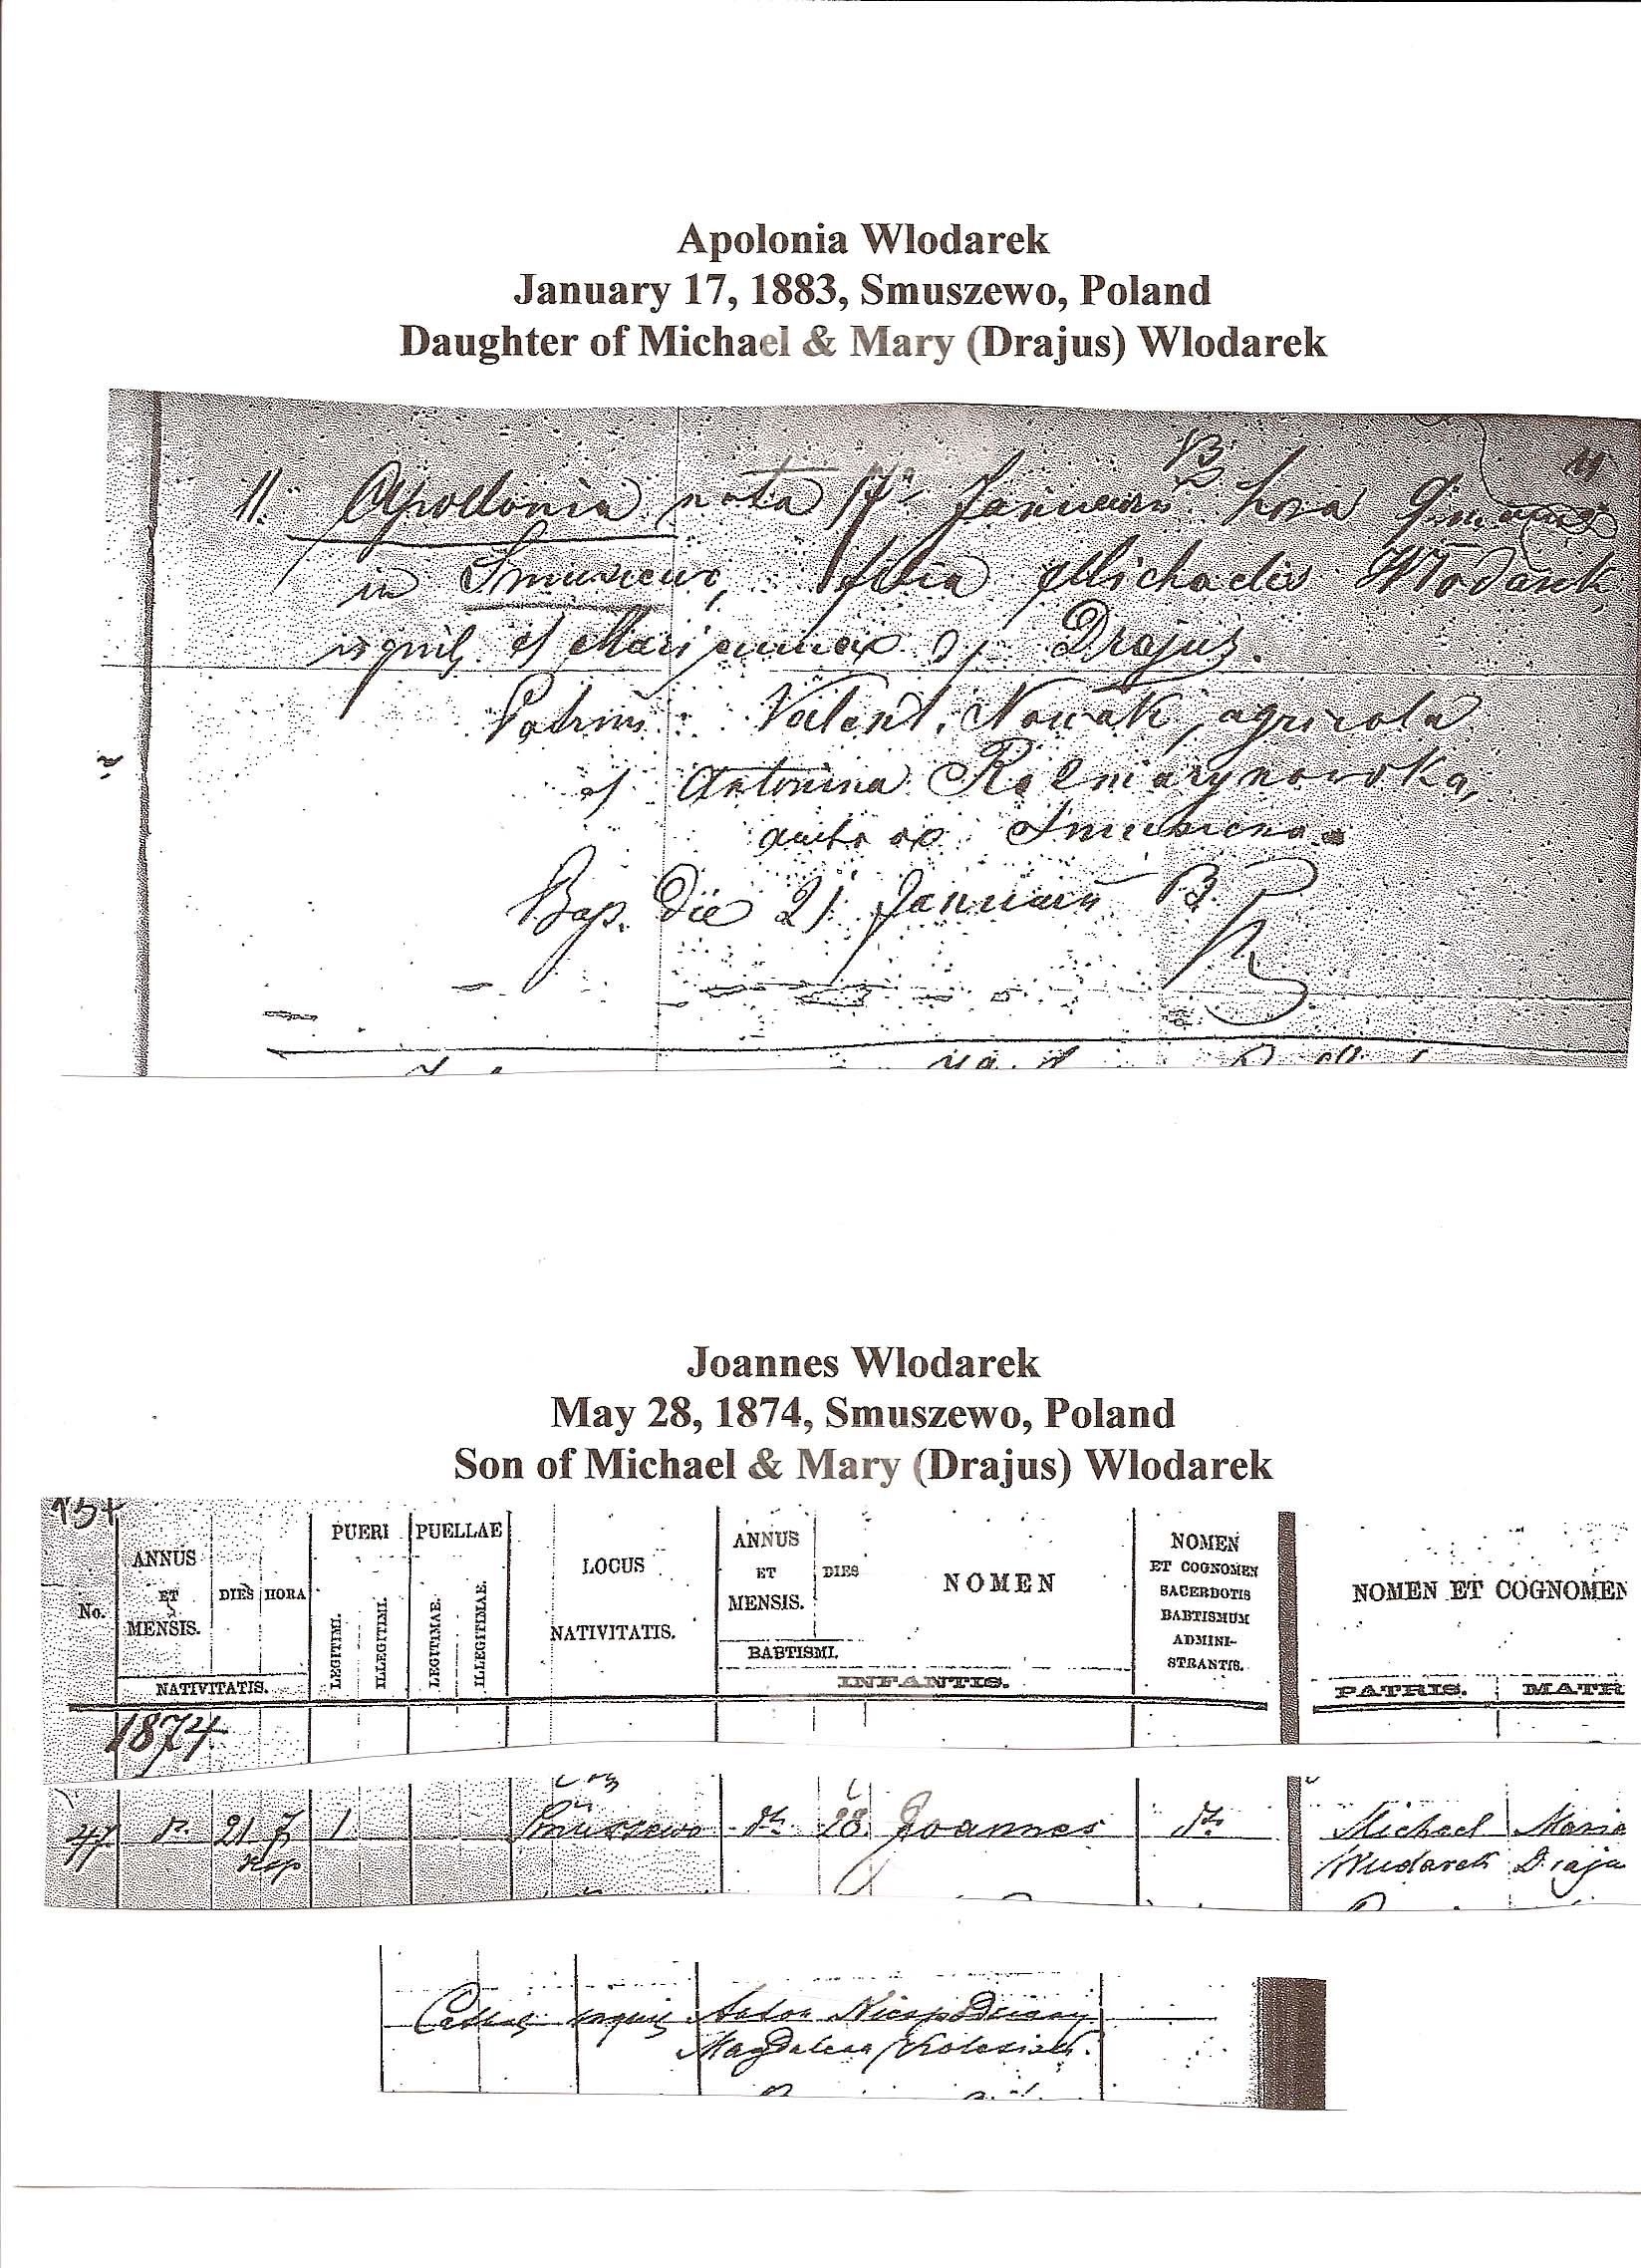 Apolonia Wlodarek
January 17, 1883, Smuszewo, Poland
Daughter of Michael & Mary (Drajus) Wlodarek
11. Apollonia nata 17a Januarii hora 9
in Smuszewo, filia Michaelis Włodarek
inquil. et Mariannae Drajus.
Patrini: Valent. Nowak, agricola
et Antonina
ambo ex
Bap. die 21 Januarii B.
Joannes Wlodarek
May 28, 1874, Smuszewo, Poland
Son of Michael & Mary (Drajus) Wlodarek
No. ANNUS ET MENSIS. DIES HORA NATIVITATIS.
PUERI LEGITIMI. ILLEGITIMI.
PUELLAE LEGITIMAE. ILLEGITIMAE.
LOCUS NATIVITATIS.
ANNUS ET MENSIS. DIES BABTISMI.
NOMEN
INFANTIS.
NOMEN ET COGNOMEN SACERDOTIS BABTISMUM ADMINI-STRANTIS.
NOMEN ET COGNOMEN
PATRIS. MATR
1874
47. 21 7 1 Smuszewo 28 Joannes Michael Maria
Wludarek Draju
Cathol inquil Anton
Magdalena